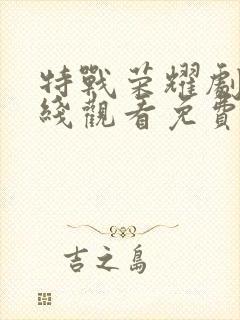 特戰荣耀劇
綫觀看免費
吉之島